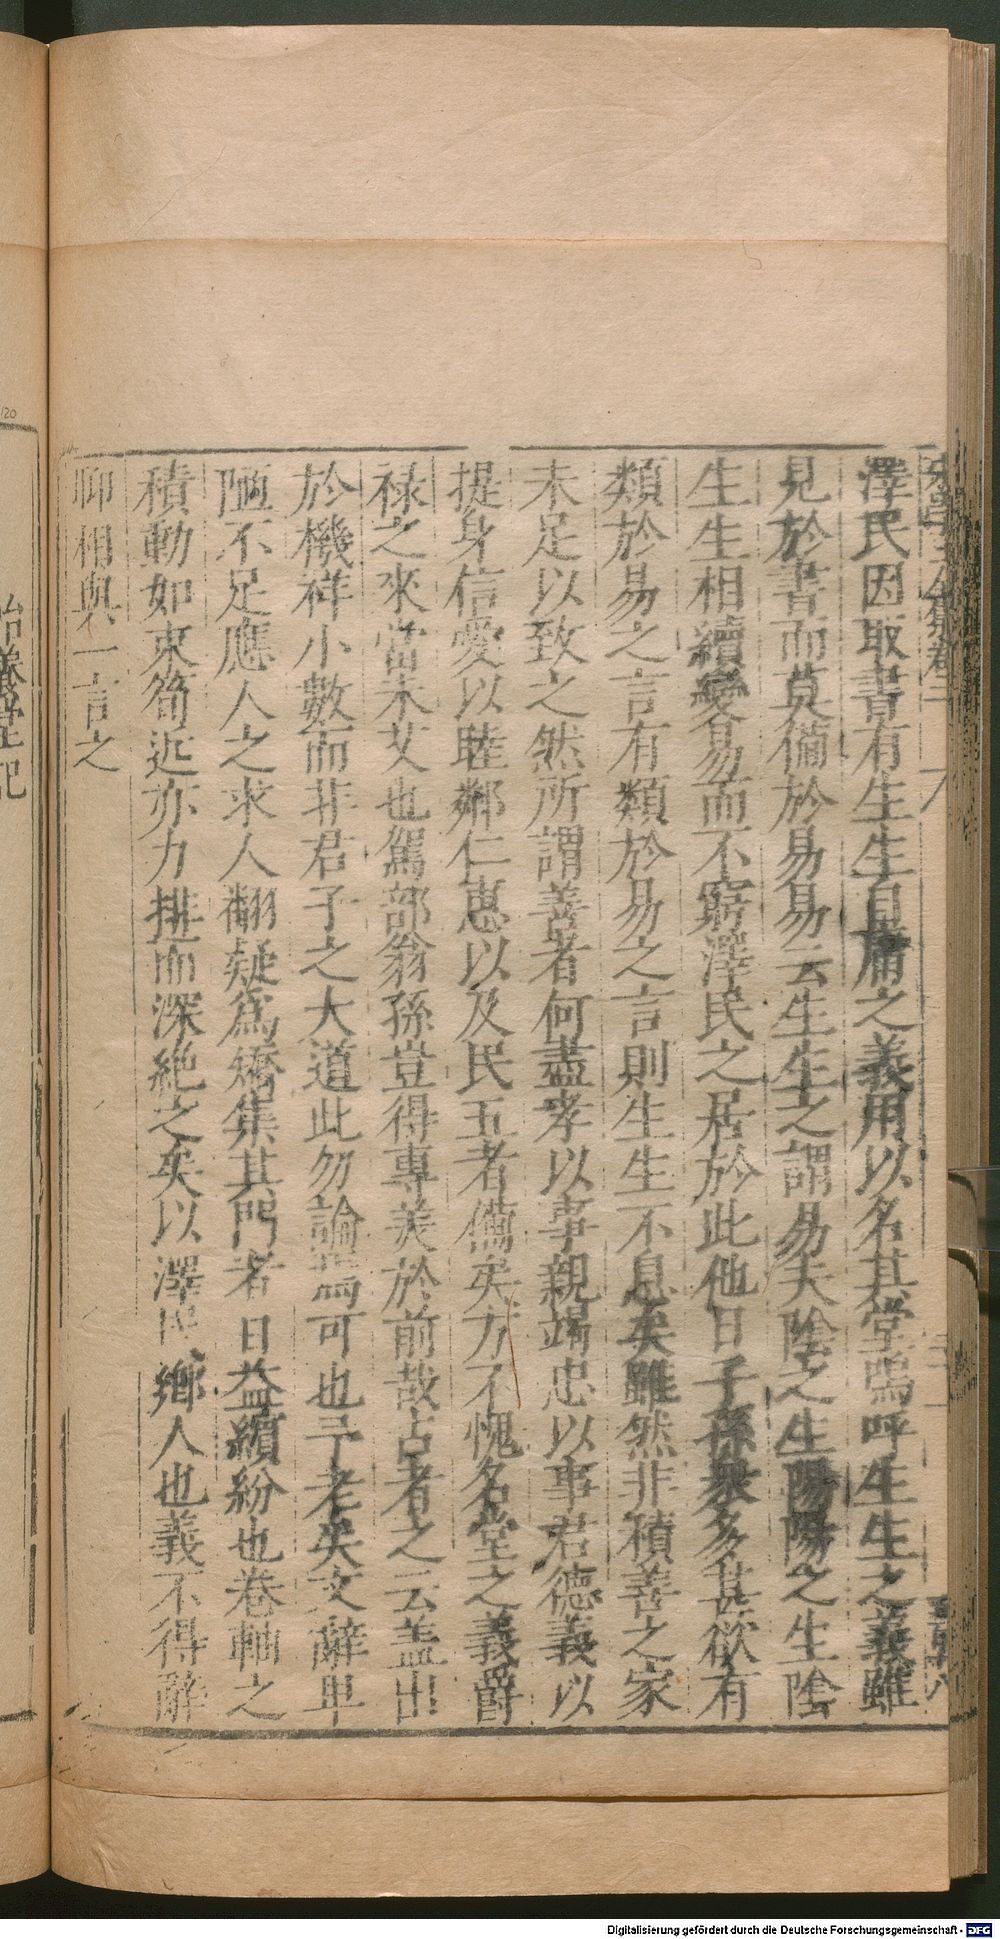 澤民因取書有生生自庸之義用以名其堂嗚呼生生之義雖
見於書而莫備於易易云生生之謂易夫陰之生陽陽之生陰
生生相續變易而不窮澤民之居於此他日子孫衆多甚欲有
類於易之言有類於易之言則生生不息矣雖然非積善之家
未足以致之然所謂善者何盡孝以事親竭忠以事君德義以
提身信愛以睦鄰仁惠以及民五者備矣方不愧名堂之義爵
祿之來當未艾也駕部翁孫豈得專美於前哉占者之云盖出
於機祥小數而非君子之大道此勿論焉可也予老矣文辭卑
陋不足應人之求人翻疑爲矯集其門者日益繽紛也卷軸之
積動如束筍近亦力排而深絶之矣以澤民鄉人也義不得辭
聊相與一言之
怡養堂記
120
Digitalisierung gefördert durch die Deutsche Forschungsgemeinschaft - DFG